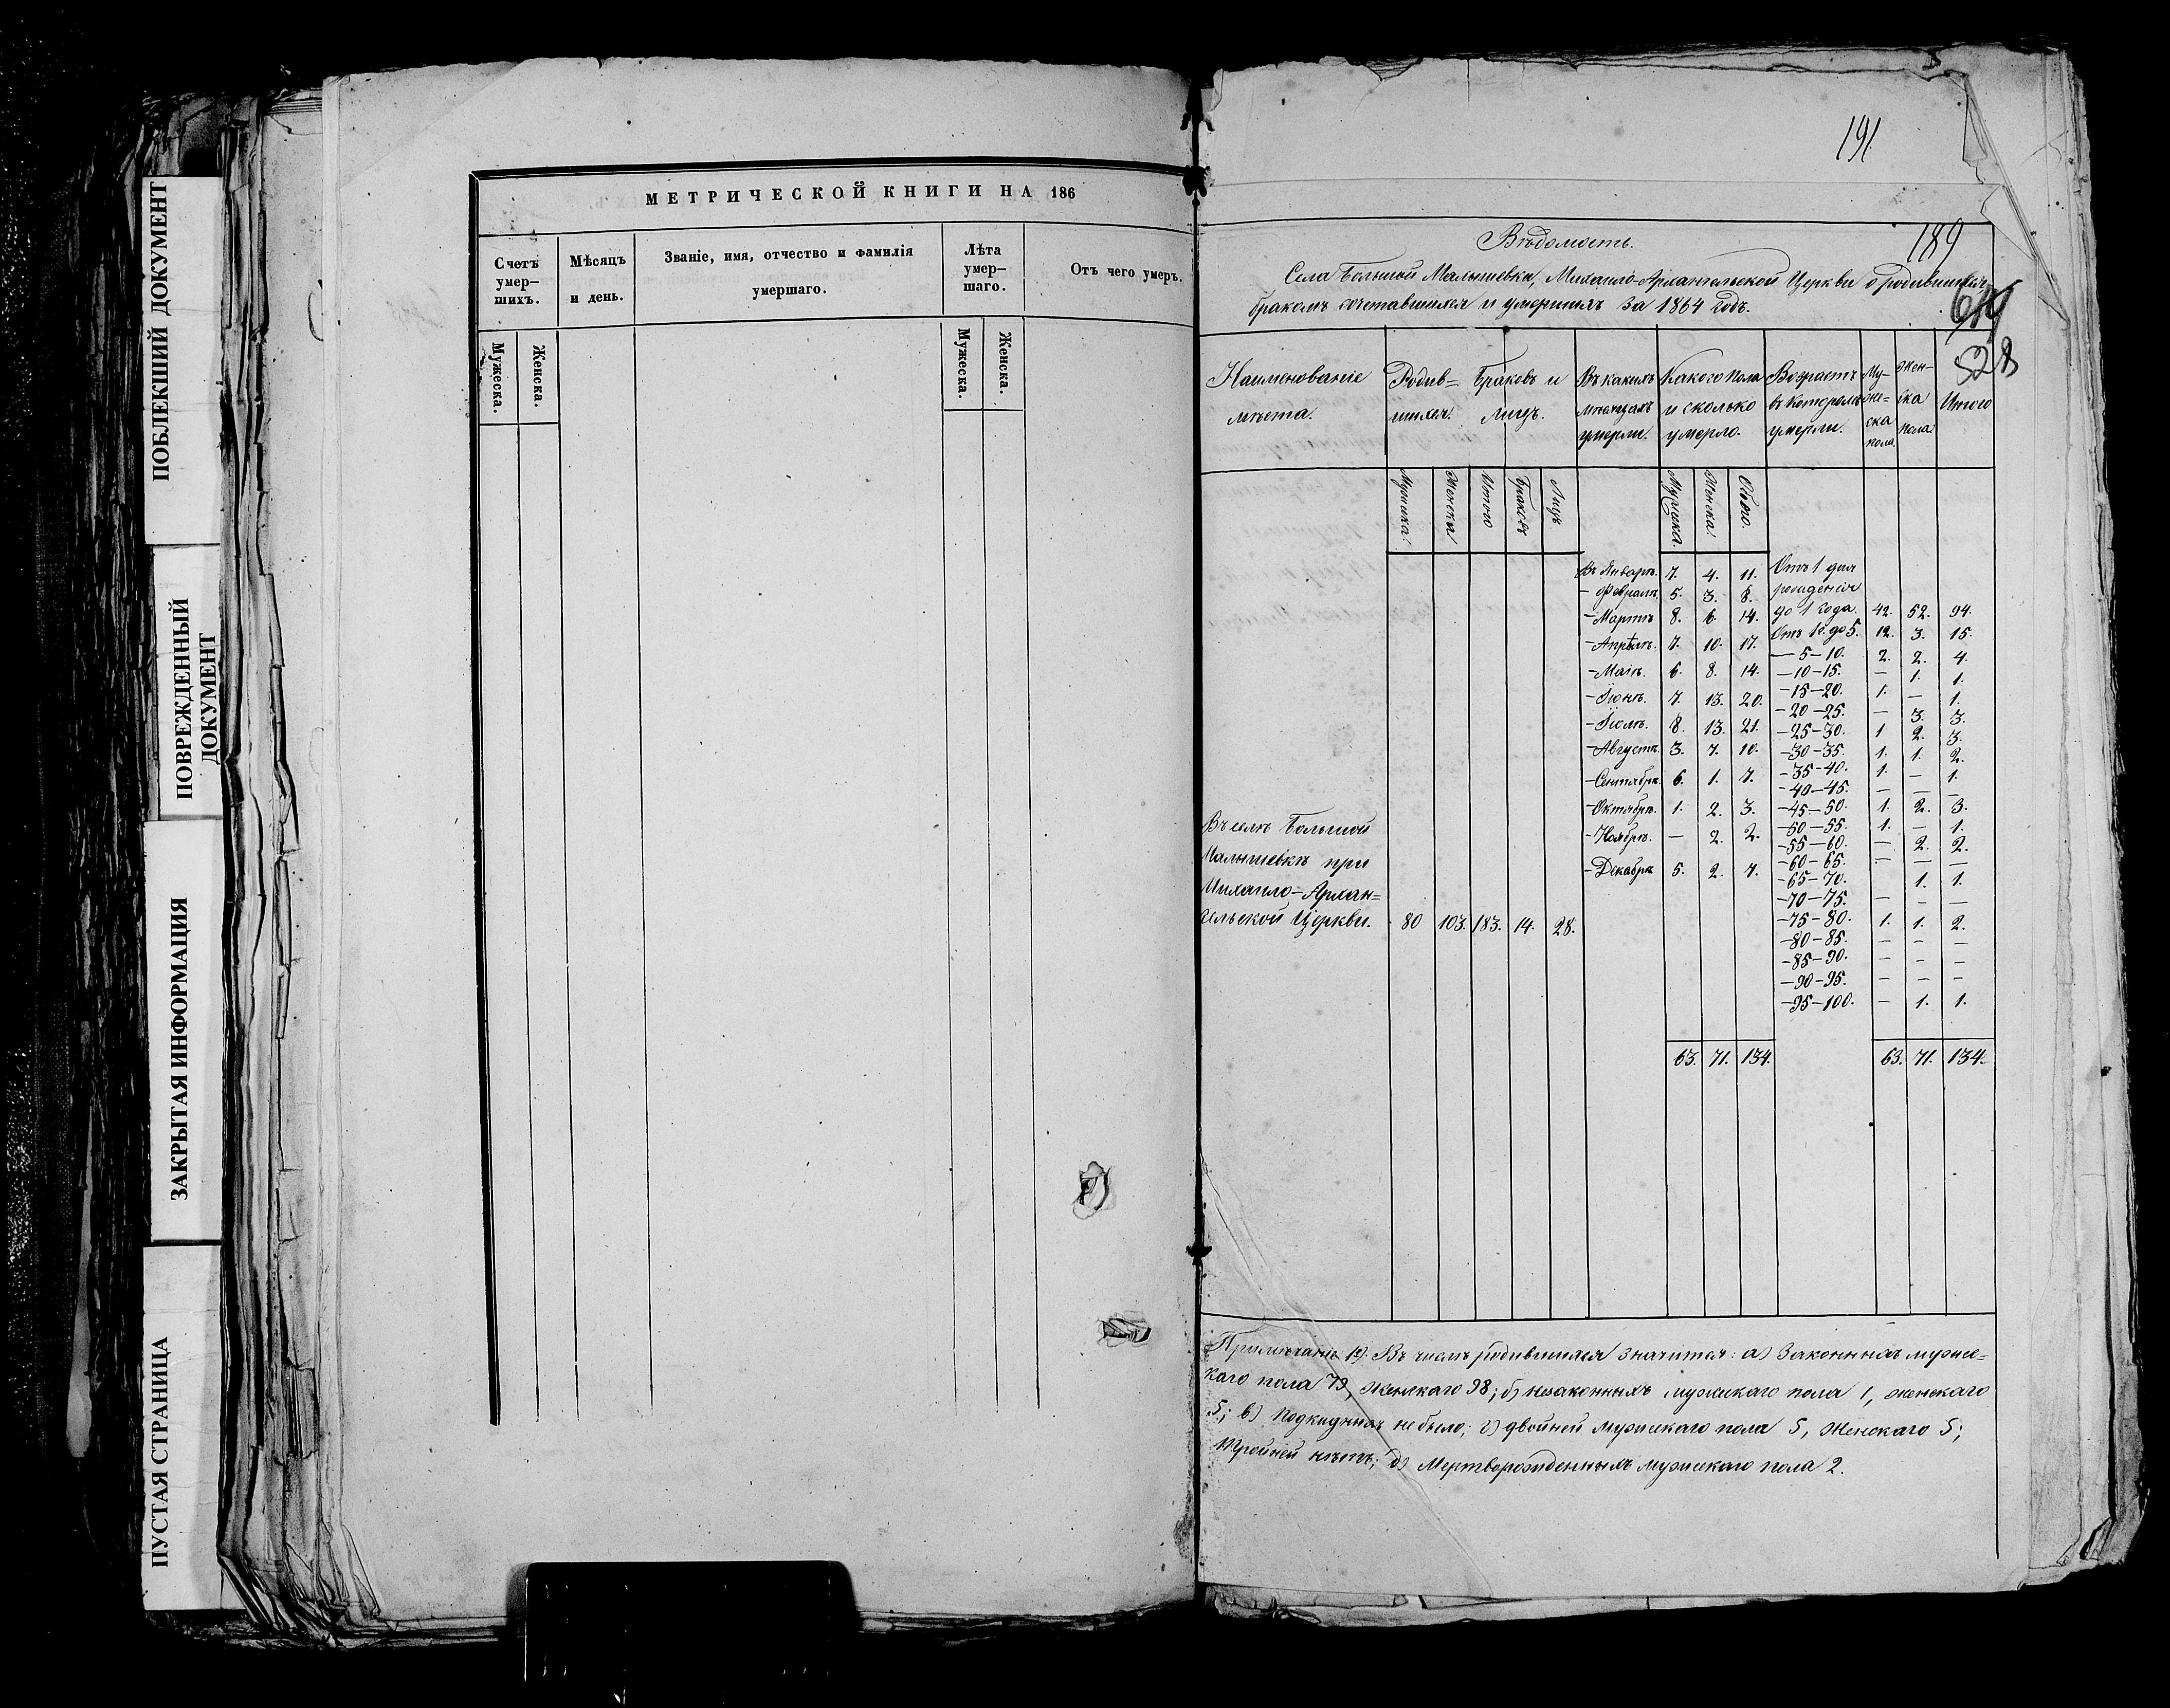 ПОБЛЕКШИЙ ДОКУМЕНТ
ПОВРЕЖДЕННЫЙ
ДОКУМЕНТ
ЗАКРЫТАЯ ИНФОРМАЦИЯ
ПУСТАЯ СТРАНИЦА
МЕТРИЧЕСКОЙ КНИГИ НА 186
Счетъ умер— шихъ.
Мѣсяцъ и день.
Званіе, имя, отчество и фамилія умершаго.
Лѣта умер— шаго.
Отъ чего умеръ.
Мужеска. Женска. Мужеска. Женска.
191.
189
Вѣдомость.
Села Большой Малышевки, Михаило-Архангельской Церкви о родившихся,
бракомъ сочетавшихся и умершихъ за 1864 годъ.
619
528
Наименованіе мѣста.
Родив= шихся.
Браковъ и лицъ.
Въ какихъ мѣсяцахъ умерли.
Какого пола и сколько умерло.
Возрастъ въ которомъ умерли.
Му= же= ска пола.
Жен= ска пола.
Итого
Мужска. Женска Итого Браковъ Лицъ Мужеска. Женска. Обоего.
Въ Январѣ. 7. 4. 11.
— Февралѣ. 5. 3. 8.
— Мартѣ 8. 6. 14.
— Апрѣлѣ. 7. 10. 17.
— Маіѣ. 6. 8. 14.
— Іюнѣ. 7. 13. 20.
— Іюлѣ. 8. 13. 21.
— Августѣ. 3. 7. 10.
— Сентябрѣ. 6. 1. 7.
— Октябрѣ. 1. 2. 3.
— Ноябрѣ. — 2. 2.
— Декабрѣ 5. 2. 7.
63. 71. 134.
Отъ 1 дня
рожденія
до 1 года. 42. 52. 94.
Отъ 1г. до 5. 12. 3. 15.
— 5—10. 2. 2. 4.
—10—15. — 1. 1.
—15—20. 1. — 1.
—20—25. — 3. 3.
—25—30. 1 2. 3.
—30—35. 1. 1. 2.
—35—40. 1. — 1.
—40—45. — — —
—45—50. 1. 2. 3.
—50—55. 1. — 1.
—55—60. — 2. 2.
—60—65. — — —
—65—70. 1. 1.
—70—75. — — —
—75—80. 1. 1. 2.
—80—85. — — —
—85—90. — — —
—90—95. — — —
—95—100. — 1. 1.
63. 71. 134.
Въ селѣ Большой
Малышевкѣ при
Михаило-Архан=
гельской Церкви. 80 103. 183. 14. 28.
Примѣчаніе 1е). Въ числѣ родившихся значится: а) Законныхъ мужес=
каго пола 79, женскаго 98; б) незаконныхъ мужскаго пола 1, женскаго
5; в) Подкидныхъ не было; г) двойней мужескаго пола 5, женскаго 5;
Тройней нѣтъ; д) Мертворожденныхъ мужескаго пола 2.